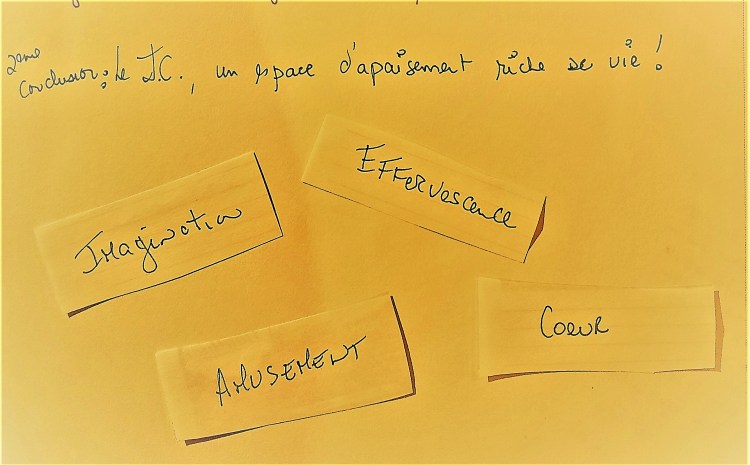 2ème
Conclusion : Le J.C., un espace d'apaisement riche de vie !
Effervescence
Imagination
Coeur
Amusement